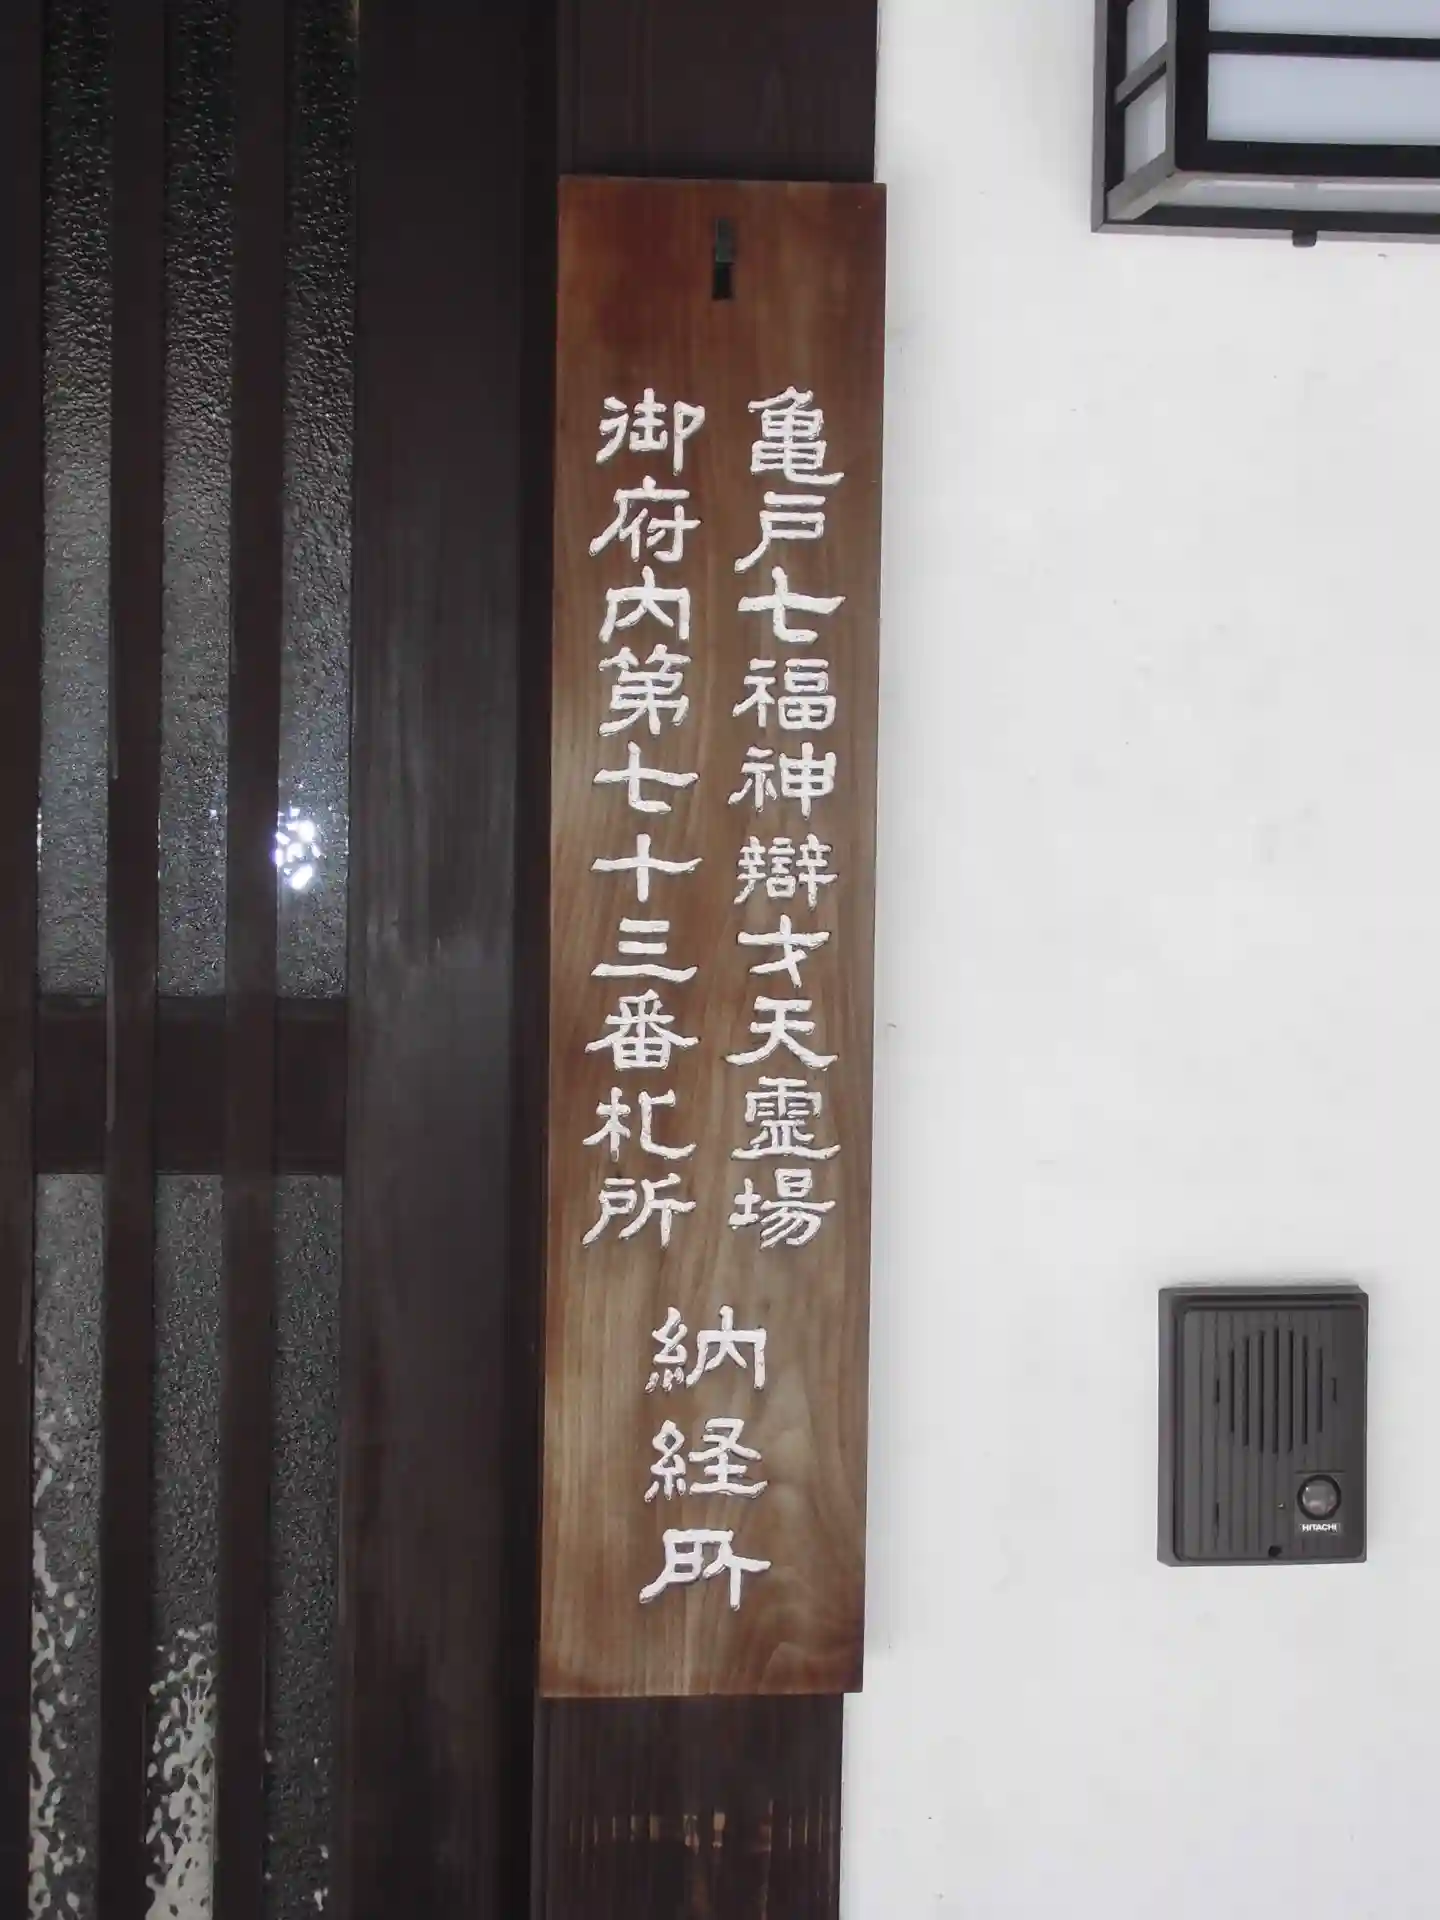 亀戸七福神辯才天霊場
御府内第七十三番札所
納経所
HITACHI